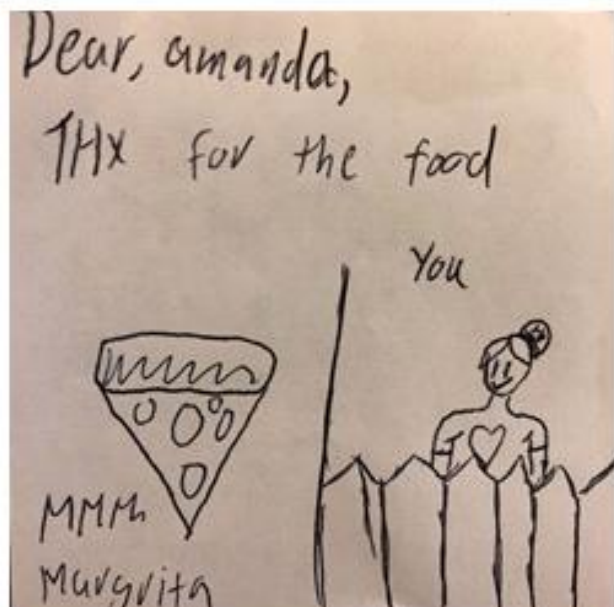 Dear, amanda,
THX for the food
You
MMM
Margrita